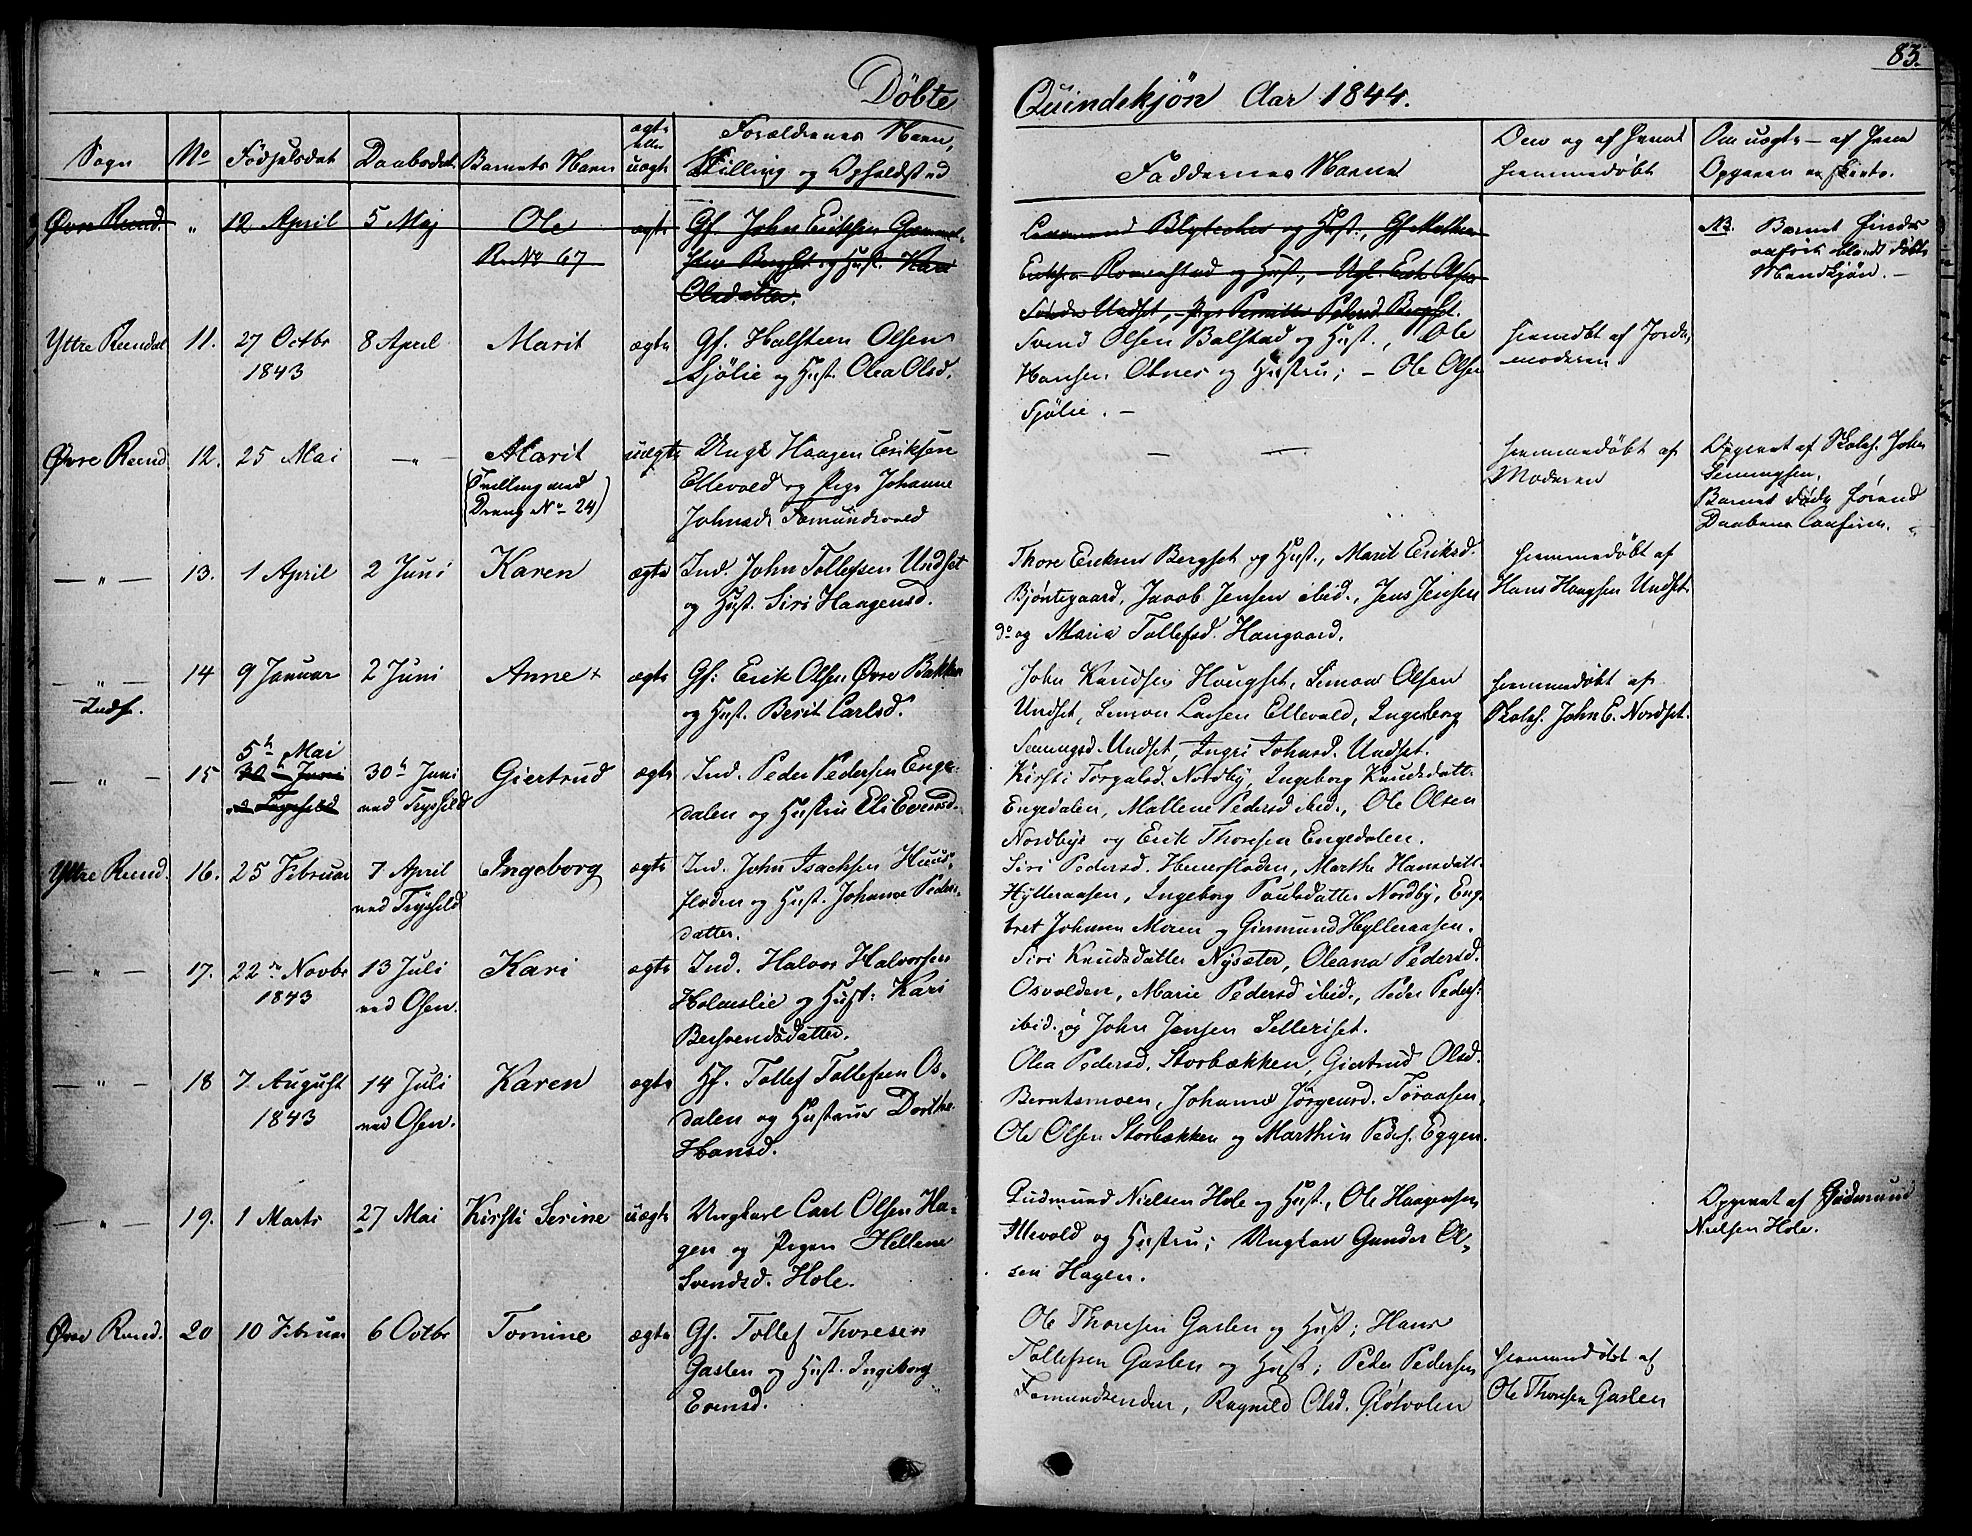 83.
Döbte Quindekjön Aar 1844.
Sogn No Födselsdat Daabsdat Barnets Navn ægte eller uægte Forældrenes Navn, Stilling og Opholdsted Faddernes Navne Om og af hvem hjemmedöbt Om uægte – af hvem Opgaven er skeet.
Øvre Rend. " 12 April 5 Maj Ole ægte Gf. John Eriksen
R. No 67 og Hust. Kari
Olsdatter.
og Hust., Gf.
Romenstad og Hust., Ungk. Erik Olsen
Undset, Pige Bergset.
NB. Barnet findes
anfört blandt döbte
Mandkjön. –
Yttre Rendal 11. 27 Octbr 8 April Marit ægte Gf. Halsteen Olsen
1843 Sjölie og Hust. Olea Olsd.
Svend Olsen Bolstad og Hust., Ole
Hansen Otnes og Hustru; – Ole Olsen
Sjölie. –
hjemdöbt af Jorde-
moderen
Øvre Rend. 12. 25 Mai – " – Marit uægte Ungk Haagen Eriksen
(Tvilling med Ellevold og Pige Johanne
Dreng No 24) Johnsd. Femundsvold
— —
hjemmedöbt af
Moderen
Opgivet af Skoleh. John
Semmingsen,
Barnet döde förend
Daabens Confirm.
– " – 13. 1 April 2 Juni Karen ægte Ind. John Tollefsen Undset
og Hust. Siri Haagensd.
Thore Eriksen Bergset og Hust., Marit Eriksd.
Bjöntegaard, Jacob Jensen ibid., Jens Jensen
do og Maria Tollefsd. Haugaard.
hjemmedöbt af
Hans Haagsen Undset
– " – 14 9 Januar 2 Juni Anne + ægte Gf: Erik Olsen Øvre Bakken
Indf. og Hust. Berit Carlsd.
John Knudsen Haugset, Simon Olsen
Undset, Simon Larsen Ellevold, Ingeborg
Semingsd. Undset, Ingri Johnsd. Undset.
hjemmedöbt af
Skoleh. John E. Nordset.
5h Mai
– " – 15 30h Juni 30h Juni Giertrud ægte Ind. Peder Pedersen Enge-
i Trysild ved Trysild dalen og Hustru Eli Evensd.
Kirsti Torgalsd. Nordby, Ingeborg Knudsdatt.
Engedalen, Mallene Pedersd ibid., Ole Olsen
Nordbye og Erik Thoresen Engedalen.
Yttre Rend. 16. 25 Februar 7 April Ingeborg ægte Ind. John Isachsen Huus-
ved Trysild floden og Hust. Johanne Peders-
datter.
Siri Pedersd. Huusfloden, Marthe Hansdatt.
Hylleraasen, Ingeborg Paulsdatter Nordby, Eng-
bret Johnsen Moren og Giermund Hylleraasen.
– " – 17. 22de Novbr 13 Juli Kari ægte Ind. Halvor Halvorsen
1843 ved Osen. Holmslie og Hust: Kari
Berhvendsdatter.
Siri Knudsdatter Nysæter, Oleana Pedersd.
Osvolden, Marie Pedersd ibid., Peder Peders.
ibid. og John Jensen Selleriset.
– " – 18 7 August 14 Juli Karen ægte Hf. Tollef Tollefsen Os-
1843 ved Osen. dalen og Hustrue Dorthe
Hansd.
Olea Pedersd, Storbækken, Giertrud Olsd.
Berntsmoen, Johanne Jörgensd. Töraasen,
Ole Olsen Storbækken og Marthin Peders. Eggen.
– " – 19. 1 Marts 27 Mai Kirsti Serine uægte Ungkarl Carl Olsen Ha-
gen og Pigen Hellene
Svendsd. Hole.
Gudmund Nielsen Hole og Hust., Ole Haagensen
Illevold og Hustru; Ungkar Gunder Ol-
sen Hagen.
Opgivet af Gudmund
Nielsen Hole.
Øvre Rend. 20 10 Februar 6 Octbr Tomine ægte Gf. Tollef Thoresen
Gaslen og Hust. Ingeborg
Evensd.
Ole Thoresen Gaslen og Hust; Hans
Tollefsen Gaslen og Hust; Peder Pedersen
Femundsenden, Ragnild Olsd. Glötvolen
hjemmedöbt af
Ole Thoresen Gaslen